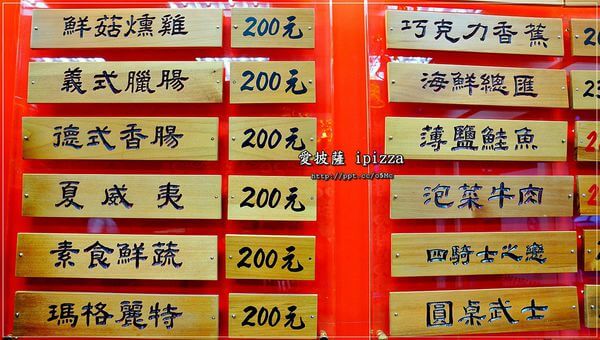 鮮菇燻雞 200元
義式臘腸 200元
德式香腸 200元
夏威夷 200元
素食鮮蔬 200元
瑪格麗特 200元
巧克力香蕉
海鮮總匯
薄鹽鮭魚
泡菜牛肉
四騎士之戀
圓桌武士
愛披薩 ipizza
http://ppt.cc/o5Mc